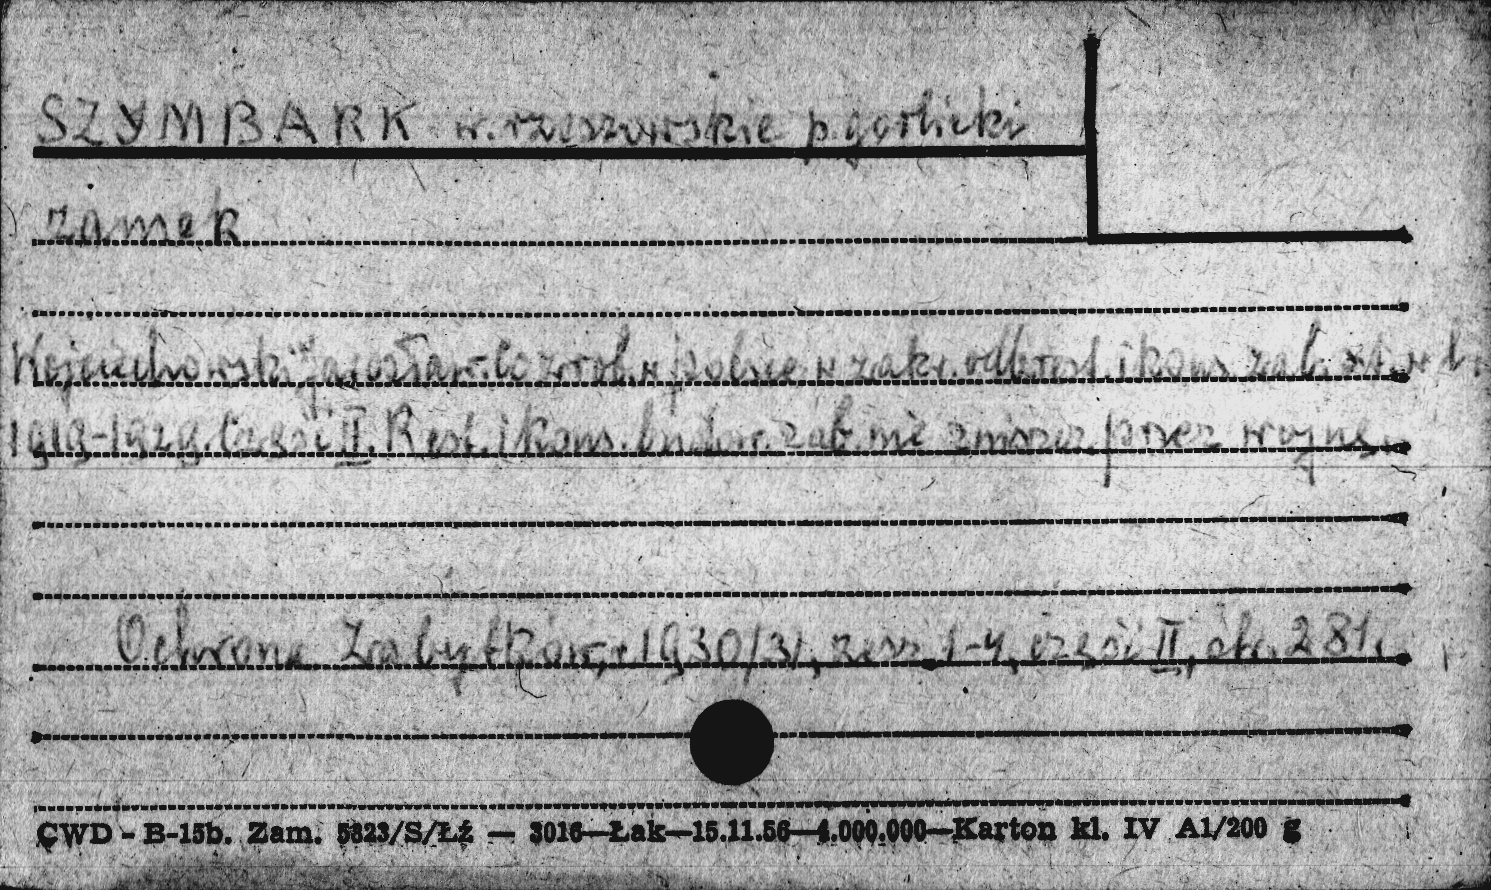 SZYMBARK w. rzeszowskie p. gorlicki
zamek
Wojciechowski Jarosław. Co zrob. w polsce w zakr. odb. rest. i kons. zab. w l.
1919-1929. Część II. Rest. i kons. budow. zab. nie zniszcz. przez wojnę.
Ochrona Zabytków, r. 1930/31, zesz. 1-4, część II, str. 281.
CWD - B-15b. Zam. 5823/S/Łź — 3016—Łak—15.11.56—4.000.000—Karton kl. IV A1/200 g